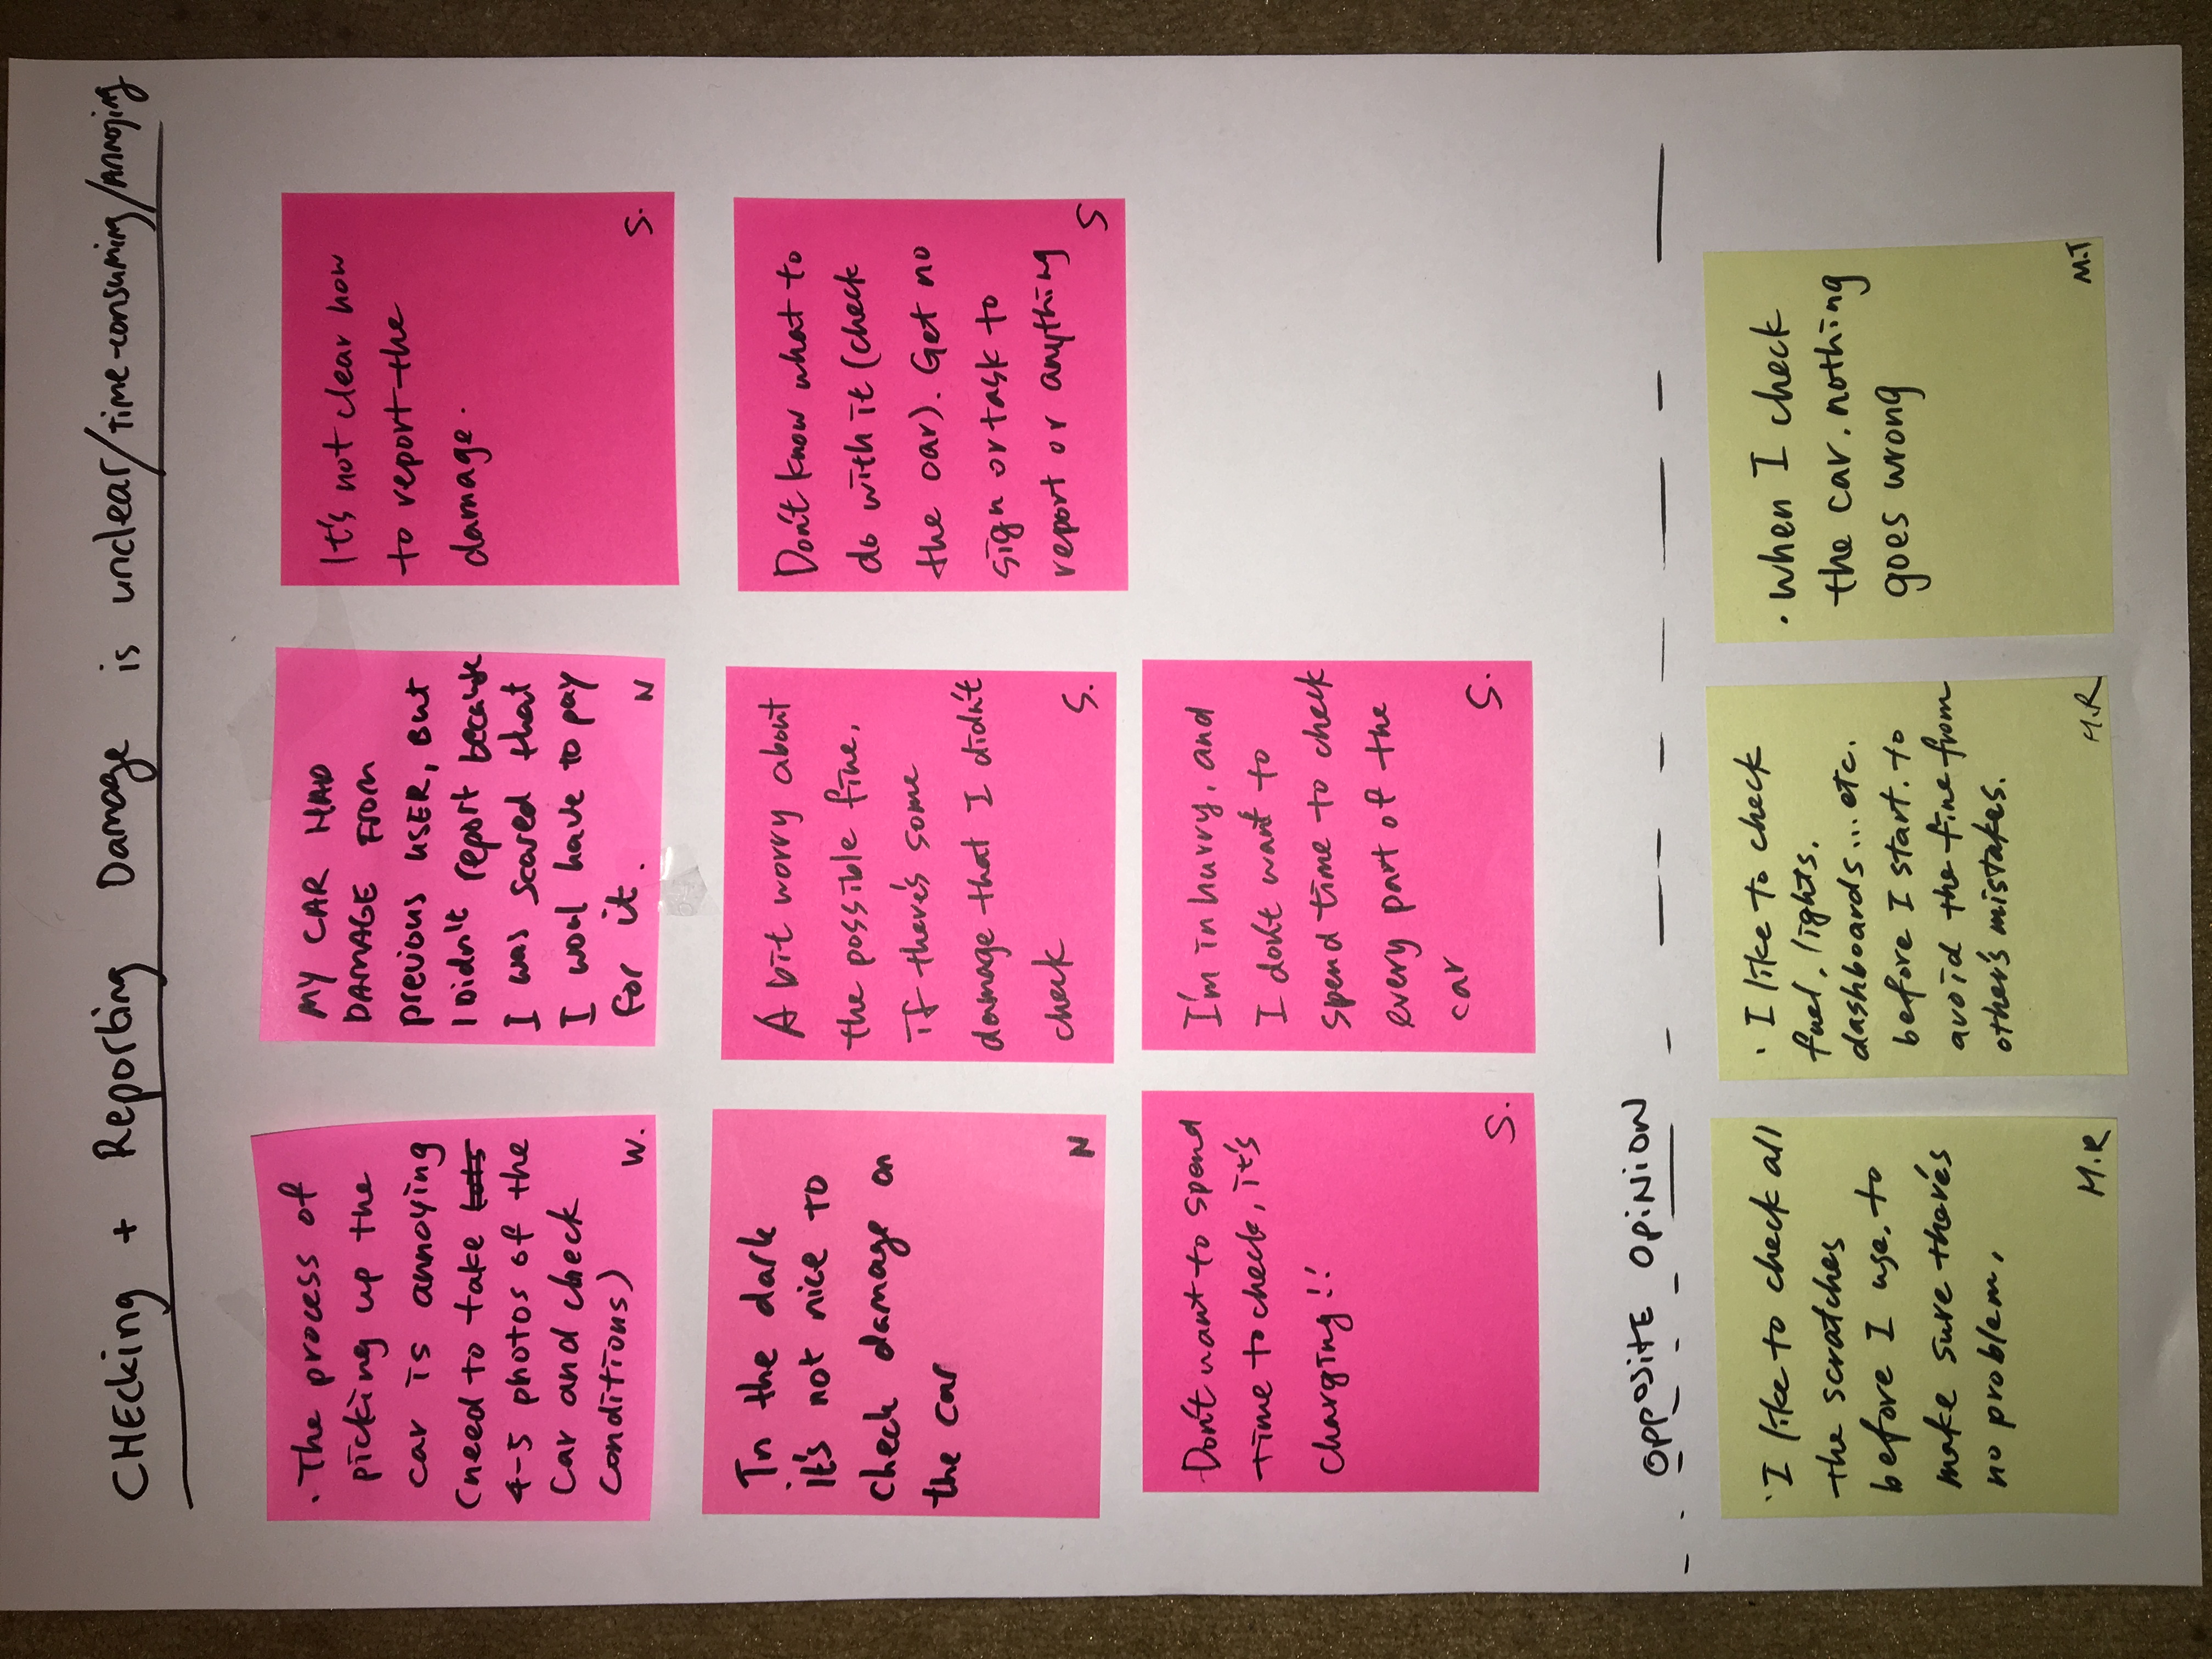 CHEcking + Reporting Damage is unclear/time-consuming/Annoying
· The process of
picking up the
car is annoying
(need to take lots
4-5 photos of the
Car and check
conditions)
W.
MY CAR HAD
DAMAGE FROM
previous USER, But
I Didn't report because
I was scared that
I woul have to pay
for it.
N
It's not clear how
to report the
damage.
S.
In the dark
it's not nice to
check damage on
the car
N
A bit worry about
the possible fine,
if there's some
damage that I didn't
check
S.
Don't know what to
do with it (check
the car). Get no
sign or task to
report or anything
S
Don't want to spend
time to check, it's
charging!!
S.
I'm in hurry, and
I don't want to
spend time to check
every part of the
car
S.
OPPOSITE OPINION
· I like to check all
the scratches
before I use, to
make sure there's
no problem,
M.R
· I like to check
fuel, lights,
dashboards...etc.
before I start. to
avoid the fine from
other's mistakes.
M.R
· when I check
the car. nothing
goes wrong
M.T